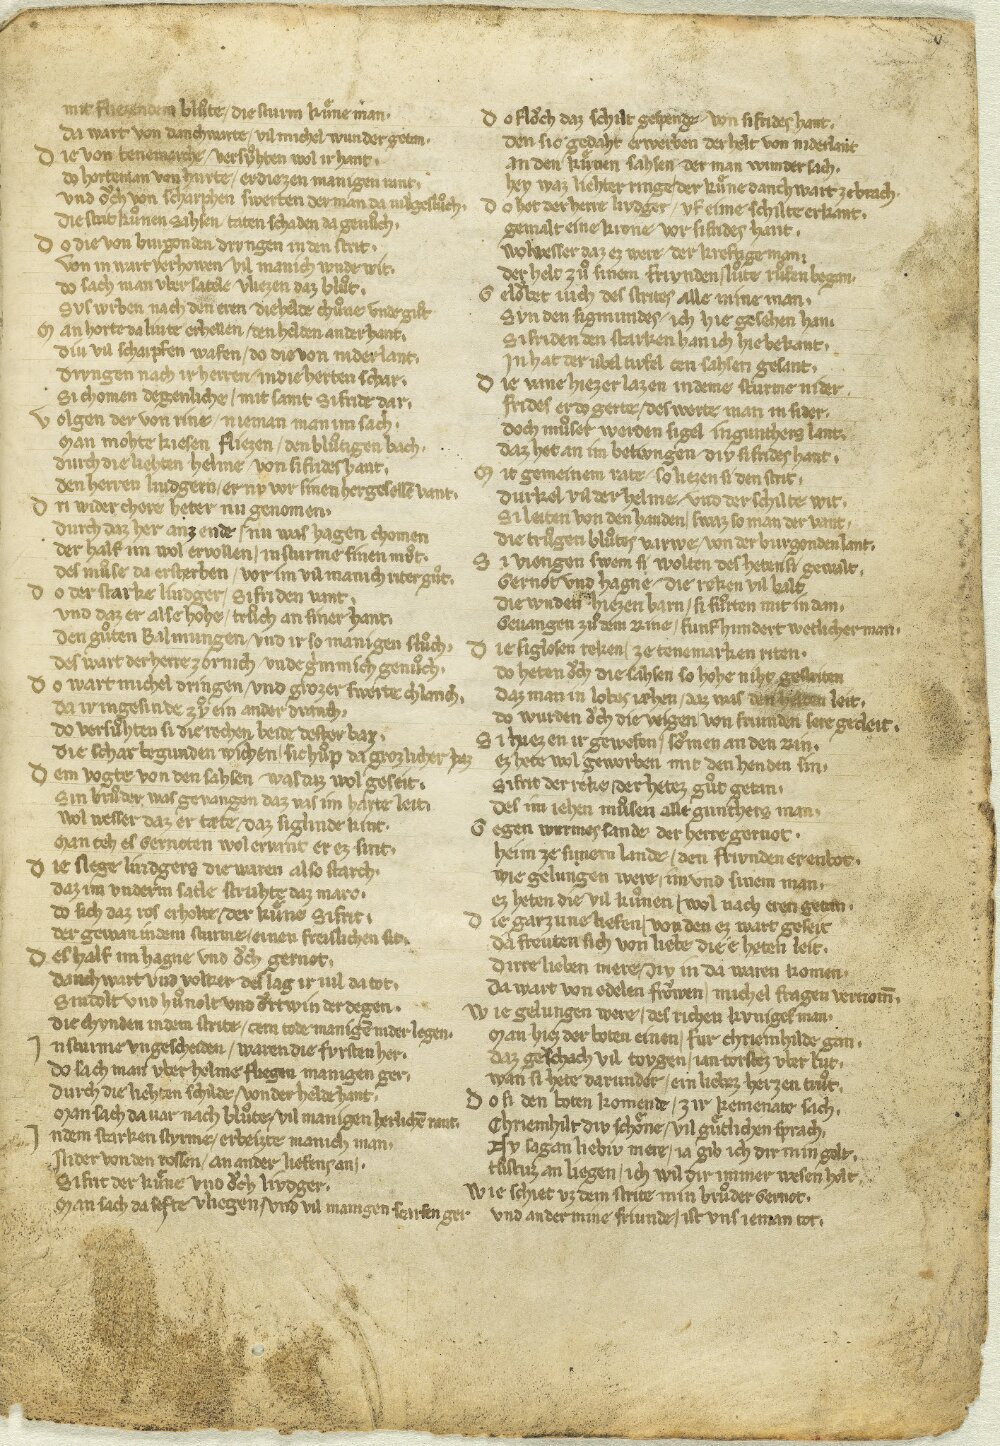 mit fliezendem blůte / die sturm kůne man.
da wart von danchwarte / vil michel wunder getan.
D ie von tenemarche / versůhten wol ir hant.
do horte man von hurte / erdiezen manigen rant.
und ǒch von scharphen swerten der man da vil gesluch.
die strit kůnen Sahsen / taten schaden da genůch.
D o die von burgonden drvngen in den strit.
von in wart verhowen / vil manich wnde wit.
do sach man vber satele / vliezen daz blůt.
Svs wrben nach den eren / die helde chůne vnde gůt
M an horte da lute erhellen / den helden an der hant.
diu vil scharpfen wafen / do die von niderlant.
drvngen nach ir herren / in die herten schar.
Si chomen degenliche / mit samt Sifride dar.
V olgen der von rine / nieman man im sach.
Man mohte kiesen fliezen / den blůtigen bach.
durch die liehten helme / von sifrides hant.
den herren liudgern / er nv vor sinen hergesellē vant.
D ri wider chere heter nu genomen.
durch daz her an z ende / nu was hagen chomen
der half im wol ervollen / in sturme sinen můt.
des můse da ersterben / vor im vil manich riter gůt.
D o der starke liudger / Sifriden vant.
vnd daz er alse hohe / trůch an siner hant.
den gůten Balmungen / vnd ir so manigen slůch.
des wart der herre zornich / vnde grimmich genůch.
D o wart michel dringen / vnd grozer swerte chlanch.
da ir ingesinde zů ein ander dranch.
do versůhten si die rechen / beide dester baz.
die schar begunden wichen / sich hůp da grozlicher haz
D em vogte von den sahsen / was daz wol geseit.
Sin brůder was gevangen daz was im harte leit.
Wol wesser daz er tæte / daz siglinde kint.
Man teh es Gernoten wol ervint er ez sint.
D ie slege liudgers die waren also starch.
daz im vnderm satle struhte daz march.
do sich daz ros erholte / der kůne Sifrit.
der gewan in dem sturme / einen freislichen sit.
D es half im hagne vnd ǒch gernot.
danchwart vnd volker des lag ir vil da tot.
Sindolt vnd hůnolt vnd ǒrtwin der degen.
die chvnden in dem strite / cem tode manigē nider legen.
I n sturme vngescheiden / waren die fvrsten her.
Do sach man vber helme fliegen manigen ger.
durch die liehten schilde / von der helde hant.
Man sach da var nach blůte / vil manigen herlichē rant.
I n dem starken styrme / erbeizte manich man.
nider von den rossen / an ander liefens an.
Sifrit der kůne vnd ǒch livdger.
Man sach da scefte vliegen / vnd vil manigen scarfen ger
D o flǒch daz schilt gespenge / von sifrides hant.
den sig gedaht erwerben der helt von niderlant
an den kůnen sahsen der man wunder sach.
hey waz liehter ringe der kůne danchwart zebrach.
D o het der herre livdger / vf eime schilte erkant.
gemalt eine krone vor sifrides hant.
Wol wesser daz ez were der kreftige man.
der helt zů sinem friynden / lute růfen began.
G elǒbet iuch des strites alle mine man.
Svn den sigmundes / ich hie gesehen han.
Sifriden den starken han ich hie bekant.
In hat der vbel tiufel cen sahsen gesant.
D ie vane hiez er lazen in deme sturme nider.
frides er do gerte / des werte man in sider.
doch můset werden sigel in gunthers lant.
daz het an im betwngen div sifrides hant.
M it gemeinem rate so liezen si den strit.
durkel vil der helme / vnd der schilte wit.
Si leiten von den handen / swaz so man der vant.
die trůgen blůtes varwe / von der burgonden lant.
S i viengen swem si wolten des heten si gewalt.
Gernot vnd hagne die reken vil balt
die wnden hiezen barn / si fůrten mit in dan.
Gevangen zů dem Rine / funf hundert wetlicher man.
D ie siglosen reken / ze tenemarken riten.
do heten ǒch die sahsen so hohe niht gestriten
daz man in lobes iæhen / daz was den helden leit.
do wurden ǒch die veigen von friunden sere gecleit.
S i hiezen ir gewefen / sǒmen an den Rin.
ez hete wol geworben mit den henden sin.
Sifrit der reke / der hetez gůt getan.
des im iehen můsen alle gunthers man.
G egen wrmes sande der herre gernot.
heim ze sinem lande / den friynden er enbot.
wie gelungen were / im vnd sinem man.
ez heten die vil kůnen / wol nach eren getan.
D ie garzune liefen / von den ez wart geseit
da freuten sich von liebe die e heten leit.
dirre lieben mere / div in da waren komen.
da wart von edelen frǒwen / michel fragen vernom̄.
W ie gelungen were / des richen kvniges man.
Man hiez der boten einen / fur chriemhilde gan.
daz geschach vil tovgen / ian torstez vber lut.
wan si hete darunder / ein liebez herzen trůt.
D o si den boten komende / z ir kemenate sach.
Chriemhilt div schǒne / vil gůtlichen sprach.
Nv sag an liebiv mere / ia gib ich dir min golt.
tůstuz an liegen / ich wil dir immer wesen holt.
W ie schiet vz dem strite min brůder Gernot.
vnd ander mine friunde / ist vns ieman tot.